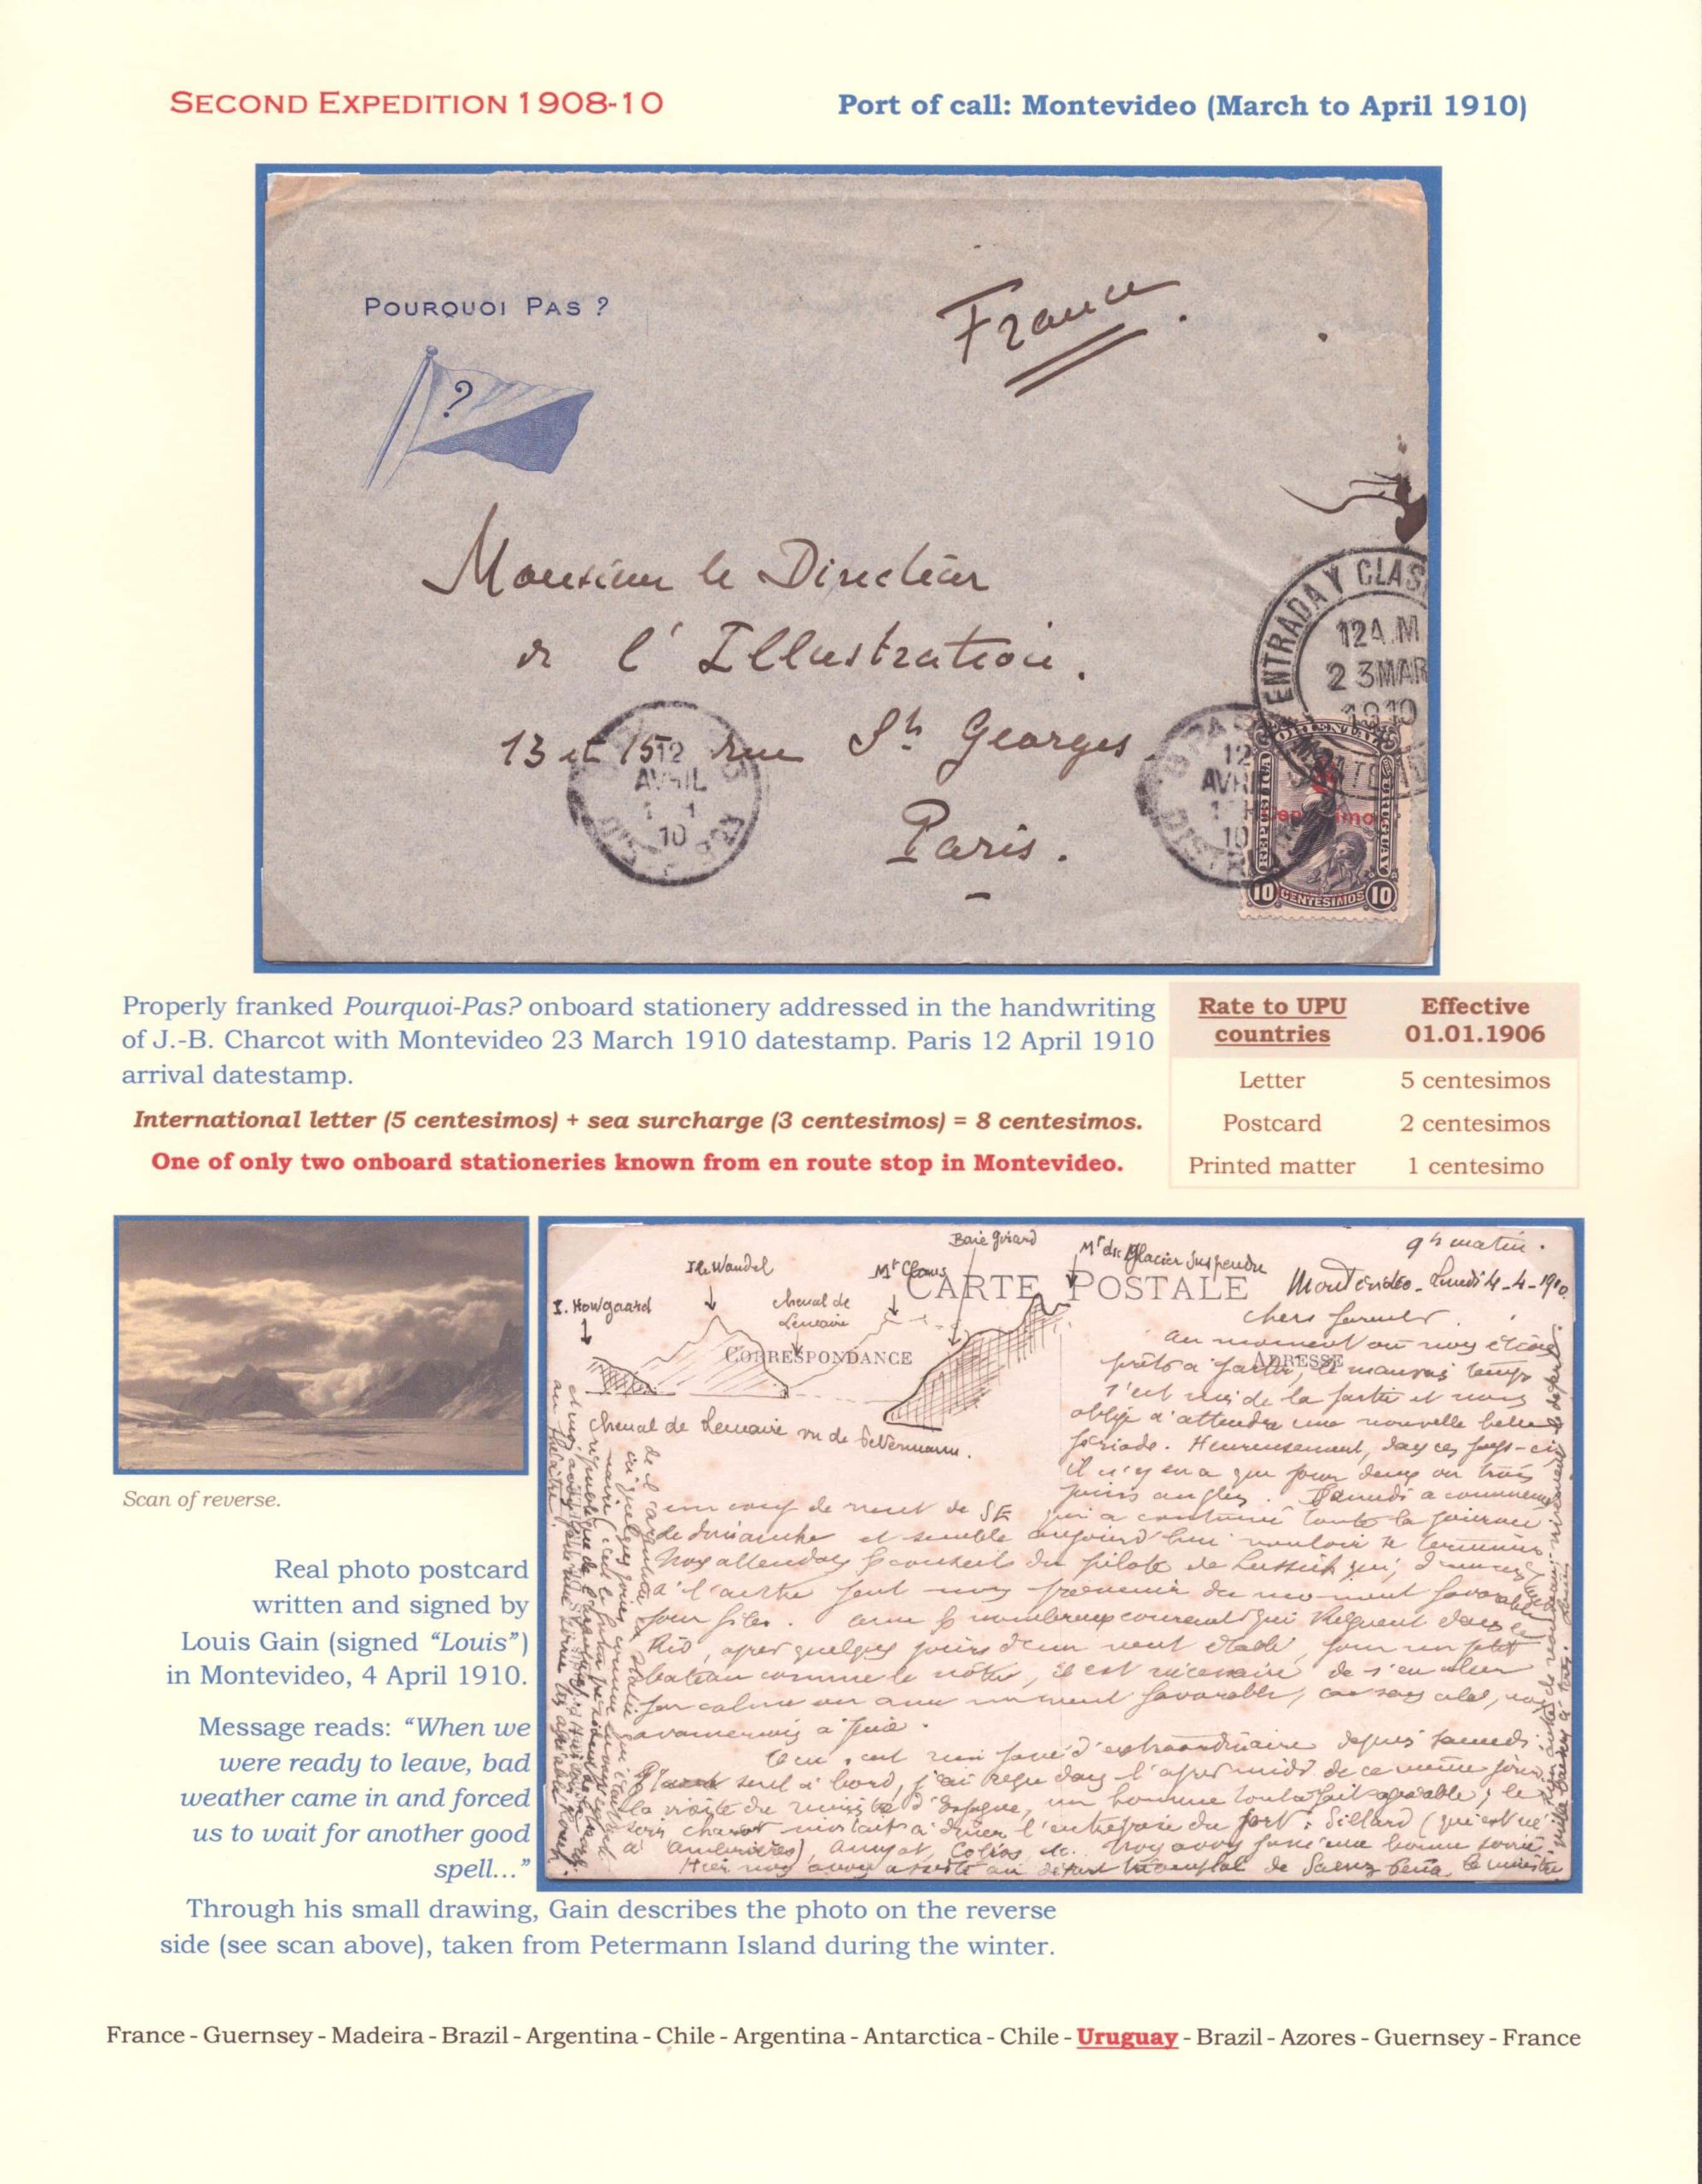 SECOND EXPEDITION 1908-10
Port of call: Montevideo (March to April 1910)
POURQUOI PAS ?
?
France
Monsieur le Directeur
de l'Illustration.
13 et 15 rue St Georges
Paris.
ENTRADA Y CLAS
12 A.M
23 MAR
1910
12
AVRIL
10
PARIS
12
AVRIL
10
REPUBLICA ORIENTAL URUGUAY
10 CENTESIMOS 10
Properly franked Pourquoi-Pas? onboard stationery addressed in the handwriting
of J.-B. Charcot with Montevideo 23 March 1910 datestamp. Paris 12 April 1910
arrival datestamp.
International letter (5 centesimos) + sea surcharge (3 centesimos) = 8 centesimos.
One of only two onboard stationeries known from en route stop in Montevideo.
Rate to UPU countries Effective 01.01.1906
Letter 5 centesimos
Postcard 2 centesimos
Printed matter 1 centesimo
Scan of reverse.
Real photo postcard
written and signed by
Louis Gain (signed “Louis”)
in Montevideo, 4 April 1910.
Message reads: “When we
were ready to leave, bad
weather came in and forced
us to wait for another good
spell...”
Through his small drawing, Gain describes the photo on the reverse
side (see scan above), taken from Petermann Island during the winter.
CARTE POSTALE
CORRESPONDANCE
ADRESSE
I. Howgaard
Ile Wandel
chenal de
Lemaire
Mt Cloos
Baie Girard
Mt du Glacier Suspendu
Chenal de Lemaire vu de Petermann.
9h matin.
Montevideo - Lundi 4-4-1910.
Chers parents.
Au moment où nous étions
prêts à partir, le mauvais temps
s'est mis de la partie et nous
oblige d'attendre une nouvelle belle
période. Heureusement, dans ces pays-ci
il n'y en a que pour deux ou trois
jours
un coup de vent de SE qui a continué toute la journée
de dimanche et semble aujourd'hui vouloir se terminer
Nous attendons les conseils du pilote de Lussich qui, d'un
à l'autre peut nous prévenir du moment favorable
pour filer. les nombreux courants qui règnent dans le
Rio, après quelques jours d'un vent établi, pour un petit
bateau comme le nôtre, il est nécessaire de s'en aller
par calme ou au moment favorable, car sans cela, nous
depuis samedi
seul à bord, j'ai reçu dans l'après midi de ce même jour
la visite du ministre d'Espagne, un homme tout à fait agréable; le
soir Charcot à dîner l'entreprise du port : Sillard (qui est né
à Ambrières), etc. Nous avons passé une bonne soirée.
Hier nous avons assisté au départ triomphal de Saenz Peña, le ministre
France - Guernsey - Madeira - Brazil - Argentina - Chile - Argentina - Antarctica - Chile - Uruguay - Brazil - Azores - Guernsey - France